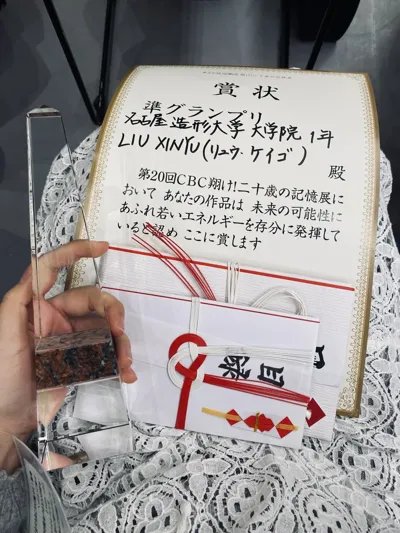 賞状
準グランプリ
名古屋造形大学 大学院 1年
LIU XINYU(リュウ・ケイゴ)
殿
第20回CBC翔け!二十歳の記憶展に
おいて あなたの作品は 未来の可能性に
あふれ若いエネルギーを存分に発揮して
いると認め ここに賞します
目録